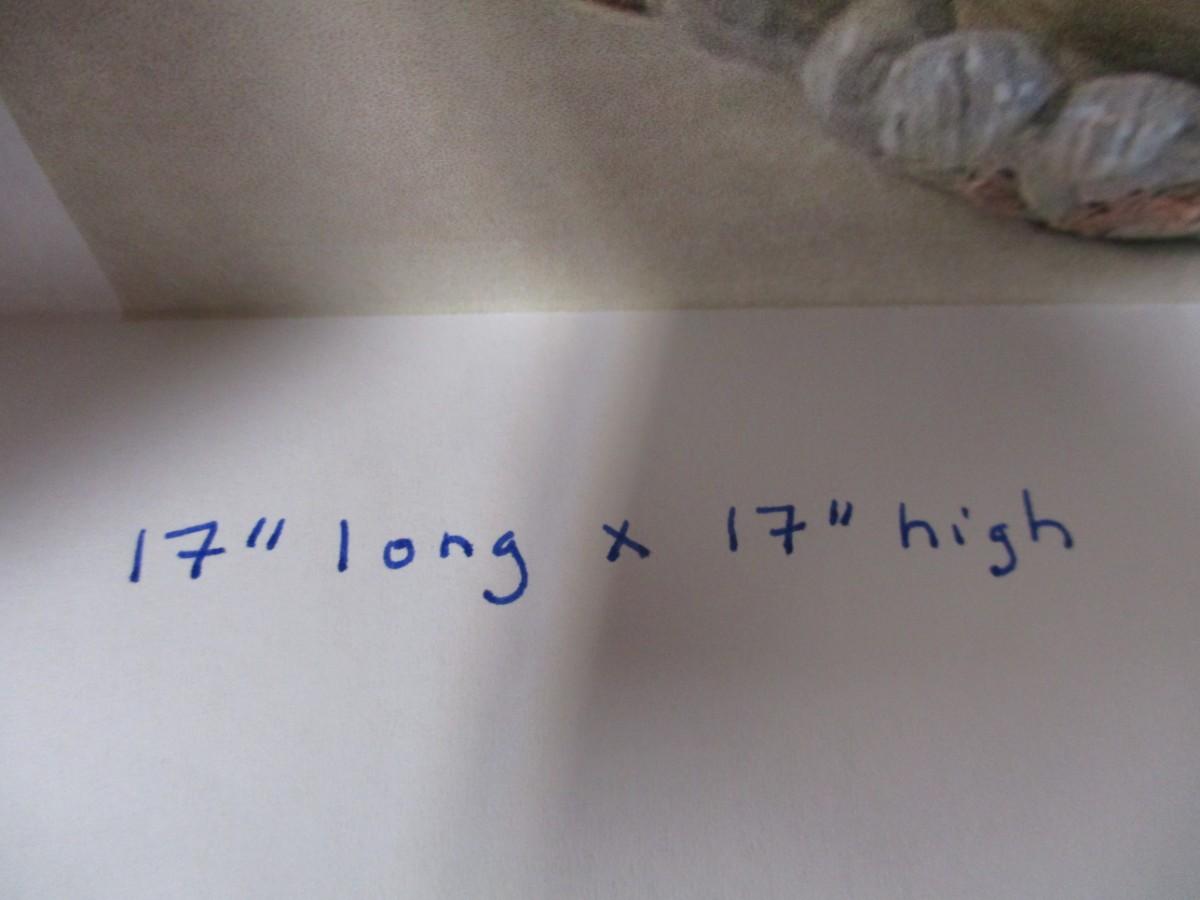 17" long x 17" high